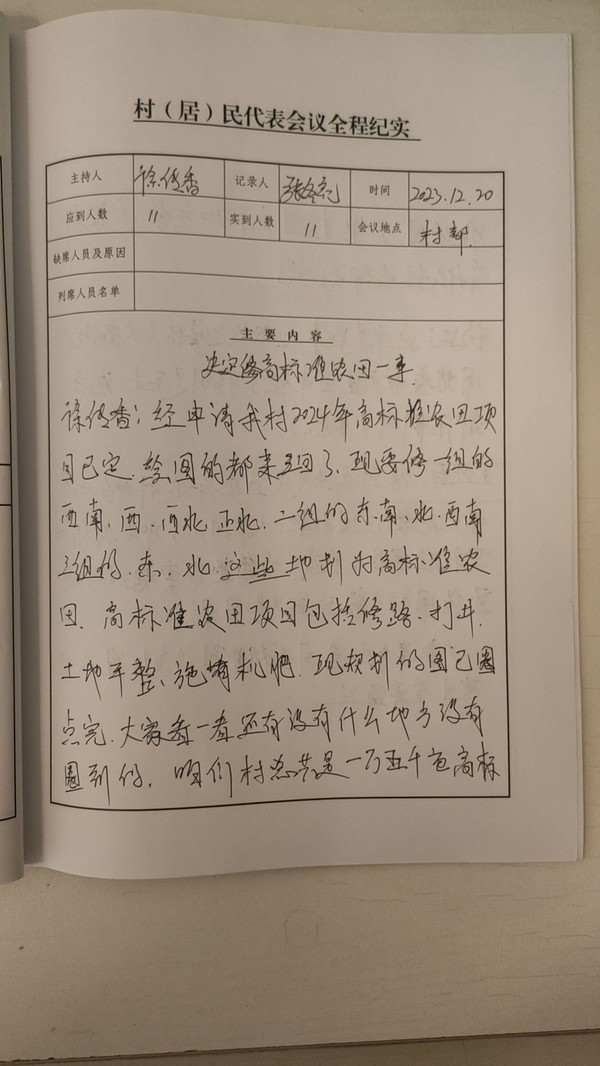 村（居）民代表会议全程纪实
主持人 徐传香 记录人 张冬 时间 2023.12.20
应到人数 11 实到人数 11 会议地点 村部.
缺席人员及原因
列席人员名单
主要内容
决定修高标准农田一事.
徐传香：经申请我村2024年高标准农田项
目已定.绘图的都来了.现要修一组的
西南、西、西北、正北.二组的东南、北、西南
三组的、东、北.这些土地划为高标准农
田.高标准农田项目包括修路、打井.
土地平整、施有机肥.现规划的图已圈
点完.大家看一看还有没有什么地方没有
圈到的.咱们村总共是一万五千亩高标